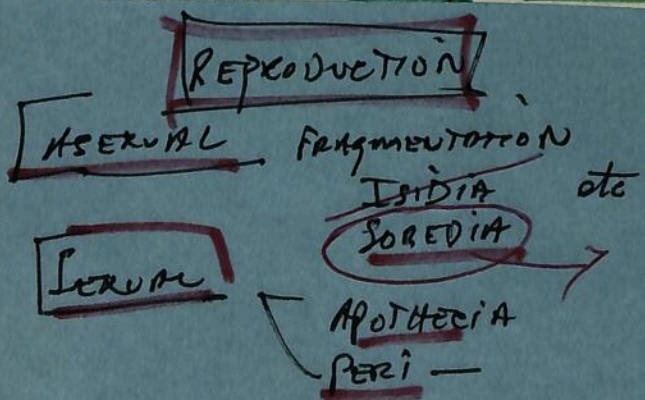 REPRODUCTION
ASEXUAL FRAGMENTATION
ISIDIA etc
SOREDIA
SEXUAL
APOTHECIA
PERI —